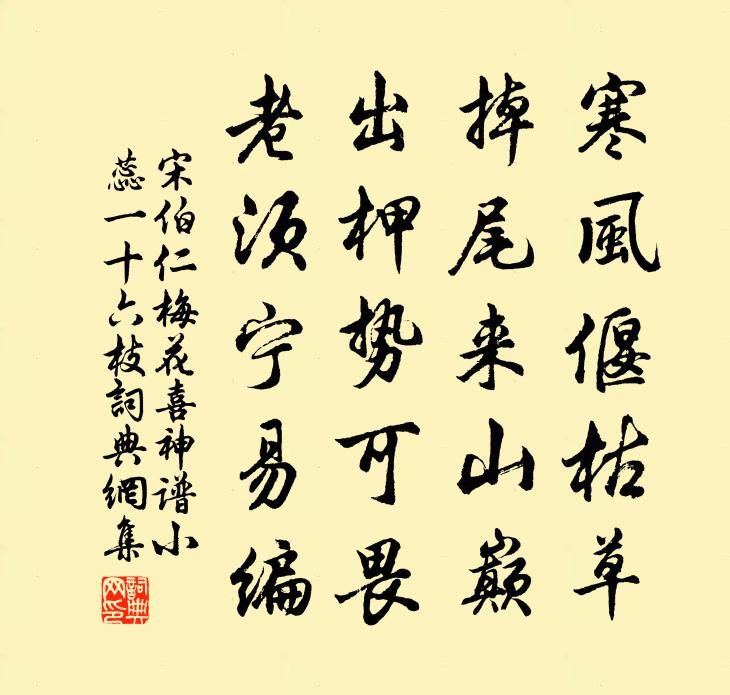 寒風偃枯草
掉尾来山巅
出柙势可畏
老须宁易编
宋伯仁梅花喜神谱小
蕊一十六枝詞典網集
詞典
网印